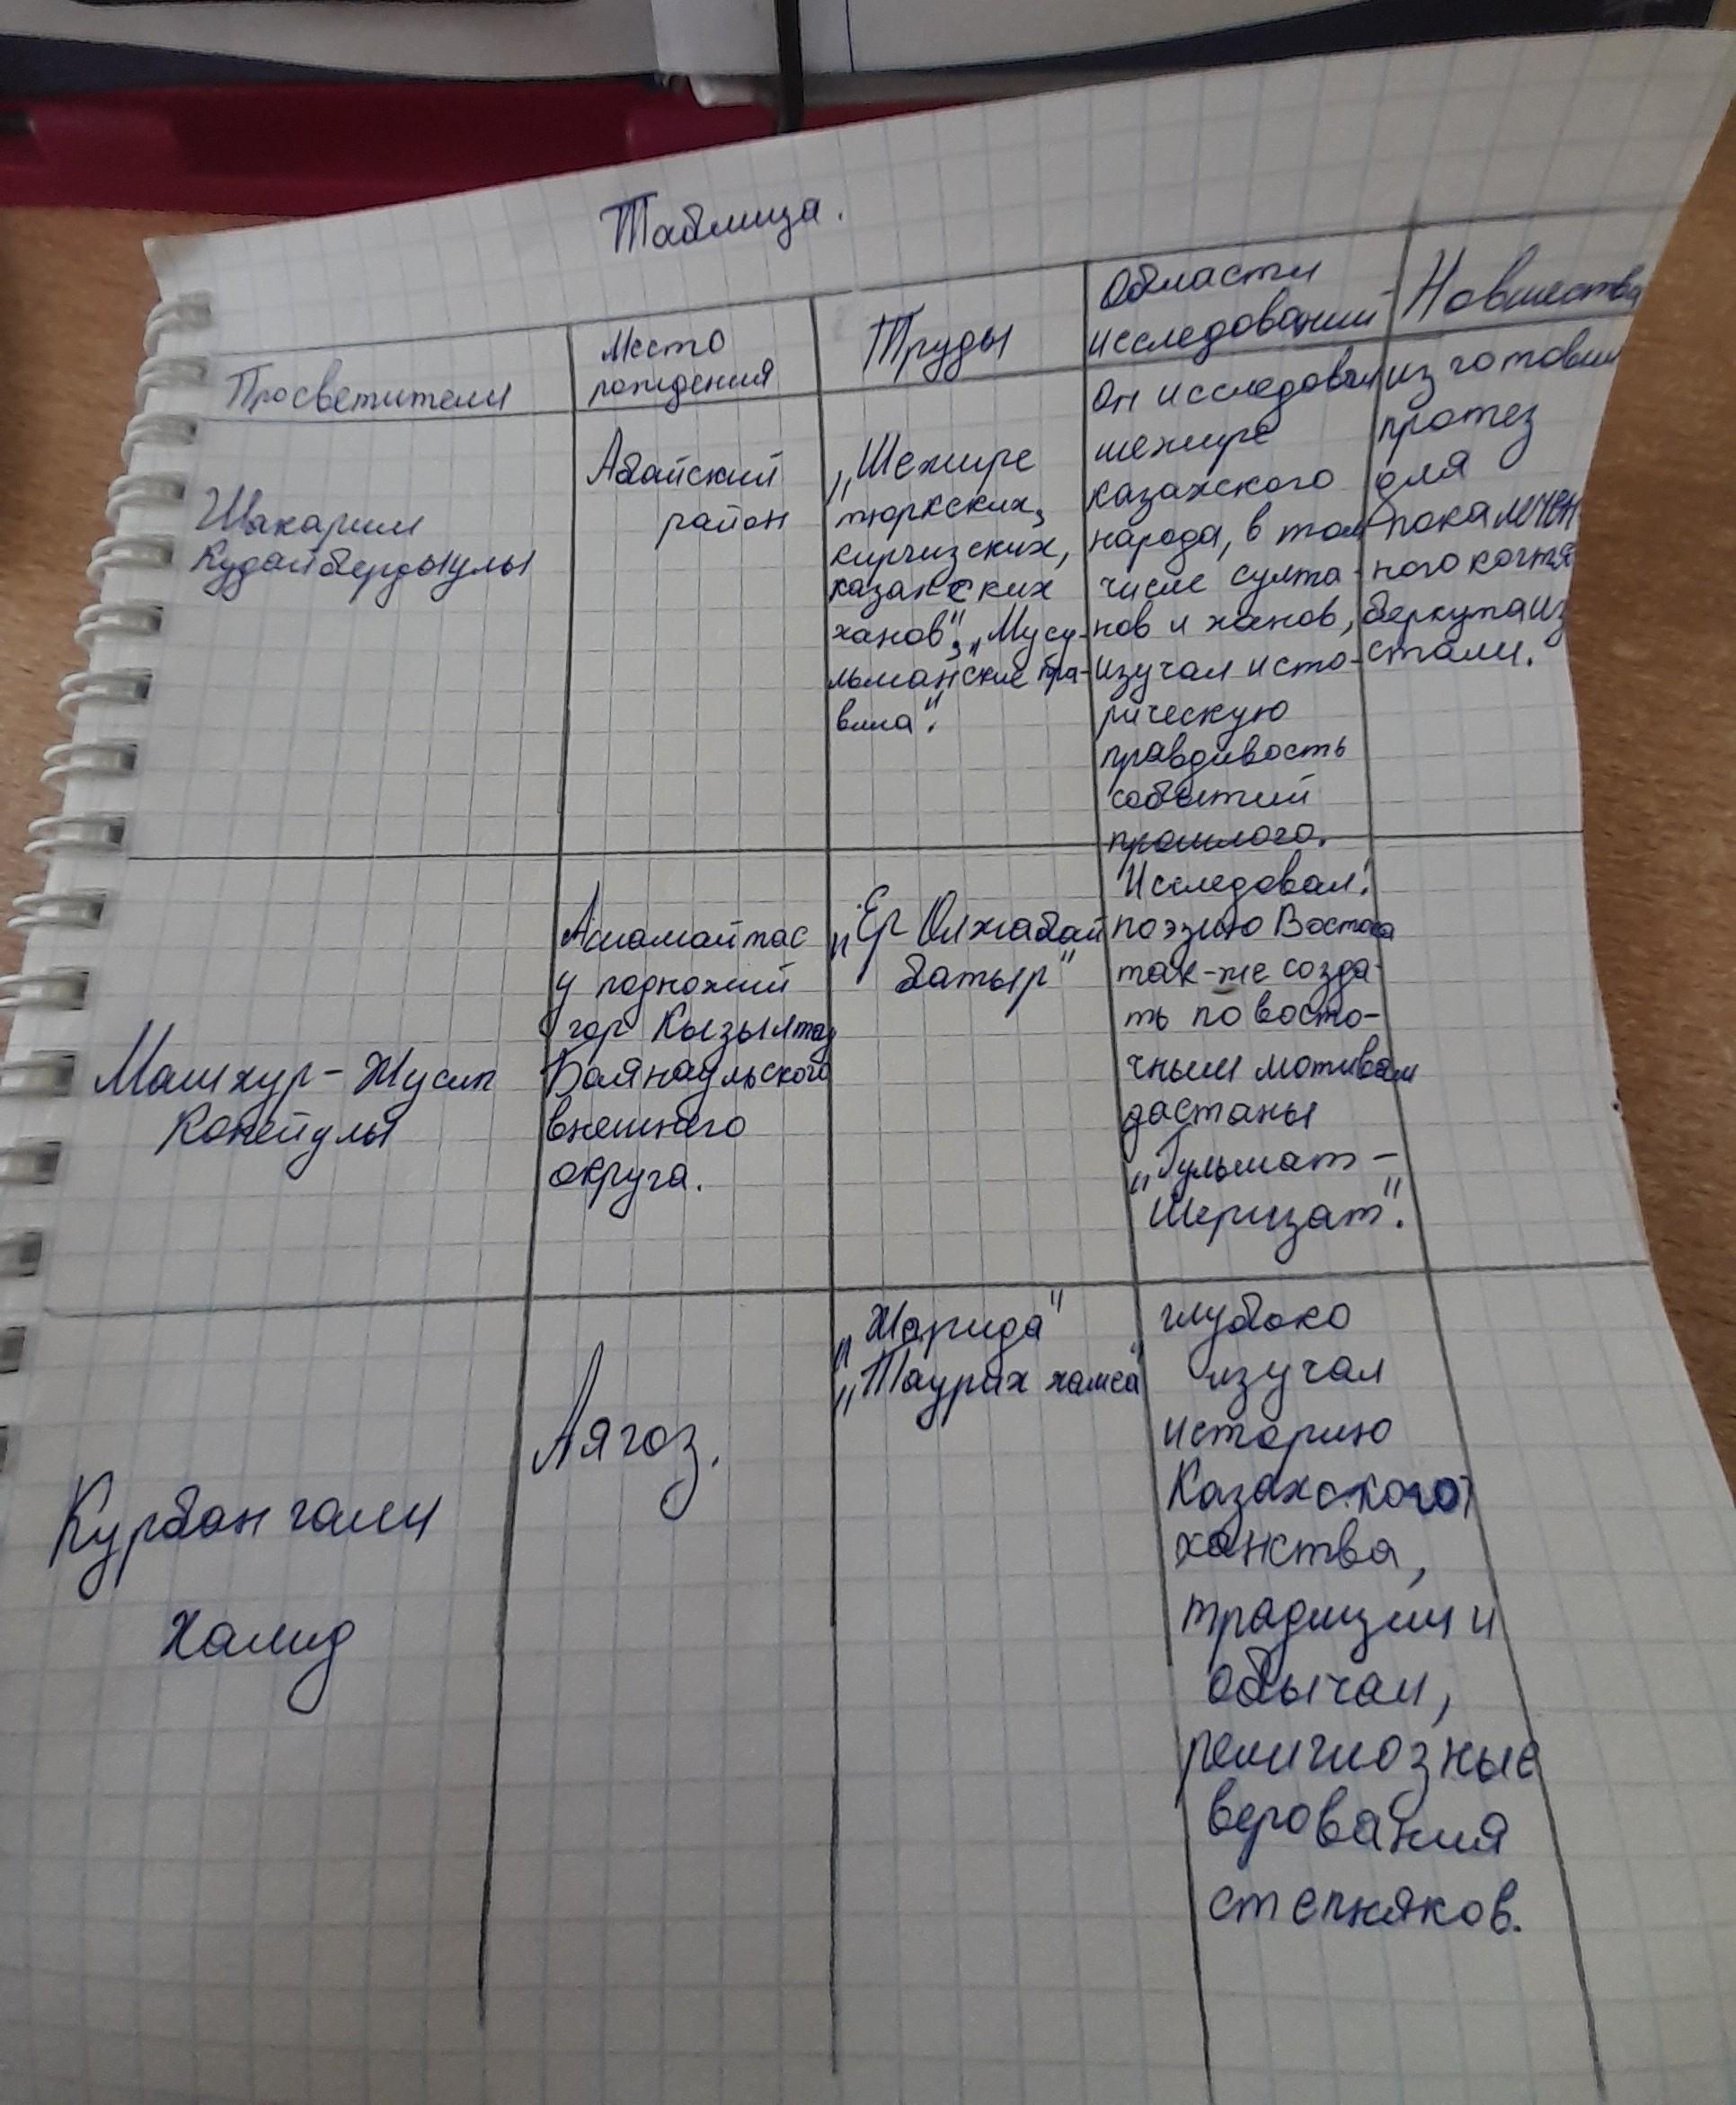 Таблица.
Просветители
Место
рождения
Труды
Области
исследований
Новшества
Шакарим
Кудайбердыулы
Абайский
район
„Шежире
тюркских,
киргизских,
казахских
ханов", „Мусу-
льманские пра-
вила".
Он исследовал
шежире
казахского
народа, в том
числе султа-
нов и ханов,
изучал исто-
рическую
правдивость
событий
прошлого.
изготовил
протез
для
покалечен
ного когтя
беркута из
стали.
Машхур-Жусип
Копейулы
у подножий
гор Кызылтау
Баянаульского
внешнего
округа.
„Ер Олжабай
батыр"
Исследовал:
поэзию Востока
так-же созда-
ть по восто-
чным мотивам
дастаны
„Гульшат-
Шеризат".
Курбангали
Халид
Аягоз.
„Жарида"
„Таурих хамса"
глубоко
изучал
историю
Казахского
ханства,
традиции и
обычаи,
религиозные
верования
степняков.